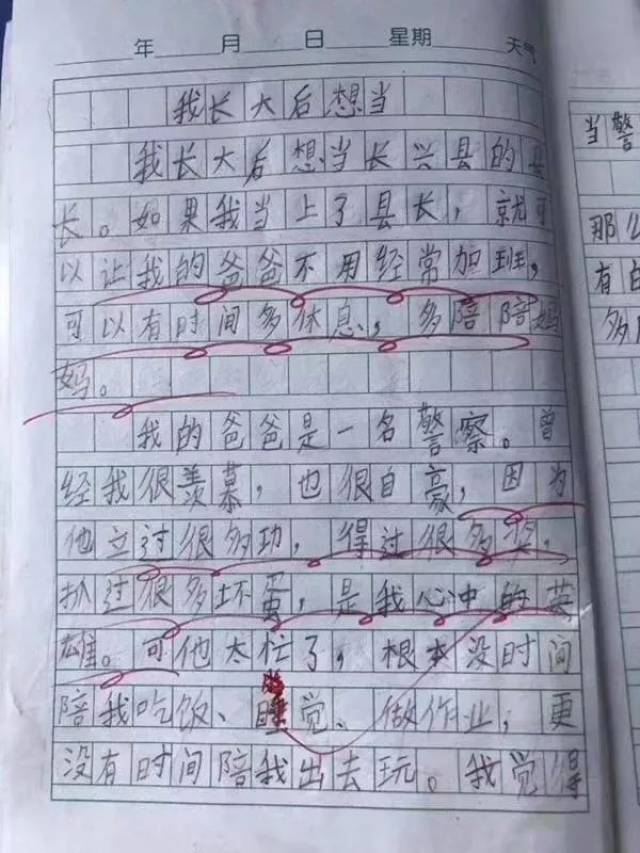 年 月 日 星期 天气
我长大后想当
我长大后想当长兴县的县
长。如果我当上了县长，就可
以让我的爸爸不用经常加班，
可以有时间多休息，多陪陪妈
妈。
我的爸爸是一名警察。曾
经我很羡慕，也很自豪，因为
他立过很多功，得过很多奖，
抓过很多坏蛋，是我心中的英
雄。可他太忙了，根本没时间
陪我吃饭、睡觉、做作业，更
没有时间陪我出去玩。我觉得
当警
那么
有的
多